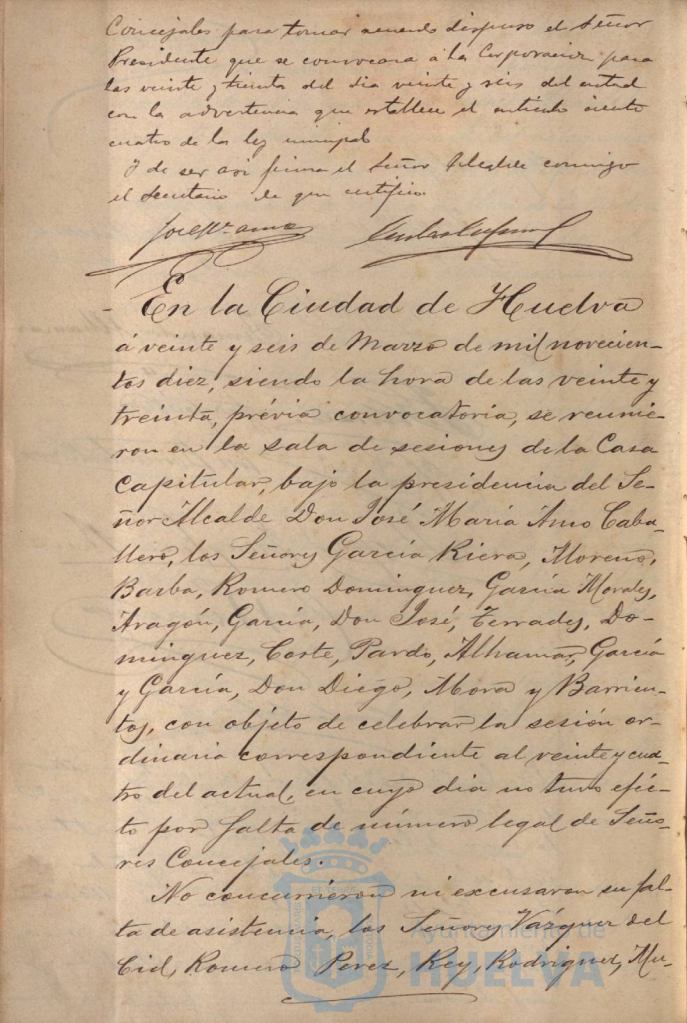 Concejales para tomar acuerdo dispuso el Señor
Presidente que se convocara a la Corporación para
las veinte y treinta del dia veinte y seis del actual
con la advertencia que establece el articulo ciento
cuatro de la ley municipal
Y de ser asi firma el Señor Alcalde conmigo
el Secretario de que certifico.
En la Ciudad de Huelva
á veinte y seis de Marzo de mil novecien-
tos diez, siendo la hora de las veinte y
treinta, prévia convocatoria, se reunie-
ron en la sala de sesiones de la Casa
Capitular, bajo la presidencia del Se-
ñor Alcalde Don José María Amo Caba-
llero, los Señores García Riera, Moreno,
Barba, Romero Dominguez, García Morales,
Aragón, García, Don José, Terrades, Do-
minguez, Coste, Pardo, Alhamar, García
y García, Don Diego, Mora y Barrien-
tos, con objeto de celebrar la sesión or-
dinaria correspondiente al veinte y cua-
tro del actual, en cuyo dia no tuvo efec-
to por falta de número legal de Seño-
res Concejales.
No concurrieron ni excusaron su fal-
ta de asistencia, los Señores Vázquez del
Cid, Romero Perez, Rey, Rodriguez, Mu-
Ayuntamiento de
HUELVA